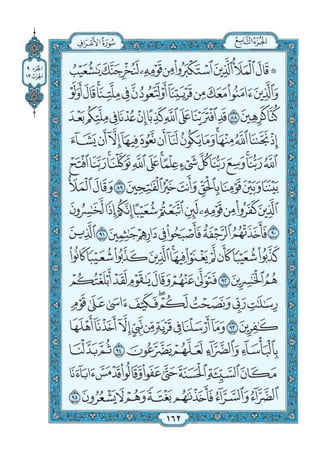 الجزء التاسع
سورة الأعراف
الجزء ٩
الحزب ١٧
۞ قَالَ ٱلْمَلَأُ ٱلَّذِينَ ٱسْتَكْبَرُوا۟ مِن قَوْمِهِۦ لَنُخْرِجَنَّكَ يَٰشُعَيْبُ
وَٱلَّذِينَ ءَامَنُوا۟ مَعَكَ مِن قَرْيَتِنَآ أَوْ لَتَعُودُنَّ فِى مِلَّتِنَا ۚ قَالَ أَوَلَوْ
كُنَّا كَٰرِهِينَ ٨٨ قَدِ ٱفْتَرَيْنَا عَلَى ٱللَّهِ كَذِبًا إِنْ عُدْنَا فِى مِلَّتِكُم بَعْدَ
إِذْ نَجَّىٰنَا ٱللَّهُ مِنْهَا ۚ وَمَا يَكُونُ لَنَآ أَن نَّعُودَ فِيهَآ إِلَّآ أَن يَشَآءَ
ٱللَّهُ رَبُّنَا ۚ وَسِعَ رَبُّنَا كُلَّ شَىْءٍ عِلْمًا ۚ عَلَى ٱللَّهِ تَوَكَّلْنَا ۚ رَبَّنَا ٱفْتَحْ
بَيْنَنَا وَبَيْنَ قَوْمِنَا بِٱلْحَقِّ وَأَنتَ خَيْرُ ٱلْفَٰتِحِينَ ٨٩ وَقَالَ ٱلْمَلَأُ
ٱلَّذِينَ كَفَرُوا۟ مِن قَوْمِهِۦ لَئِنِ ٱتَّبَعْتُمْ شُعَيْبًا إِنَّكُمْ إِذًا لَّخَٰسِرُونَ
٩٠ فَأَخَذَتْهُمُ ٱلرَّجْفَةُ فَأَصْبَحُوا۟ فِى دَارِهِمْ جَٰثِمِينَ ٩١ ٱلَّذِينَ
كَذَّبُوا۟ شُعَيْبًا كَأَن لَّمْ يَغْنَوْا۟ فِيهَا ۚ ٱلَّذِينَ كَذَّبُوا۟ شُعَيْبًا كَانُوا۟
هُمُ ٱلْخَٰسِرِينَ ٩٢ فَتَوَلَّىٰ عَنْهُمْ وَقَالَ يَٰقَوْمِ لَقَدْ أَبْلَغْتُكُمْ
رِسَٰلَٰتِ رَبِّى وَنَصَحْتُ لَكُمْ ۖ فَكَيْفَ ءَاسَىٰ عَلَىٰ قَوْمٍ
كَٰفِرِينَ ٩٣ وَمَآ أَرْسَلْنَا فِى قَرْيَةٍ مِّن نَّبِىٍّ إِلَّآ أَخَذْنَآ أَهْلَهَا
بِٱلْبَأْسَآءِ وَٱلضَّرَّآءِ لَعَلَّهُمْ يَضَّرَّعُونَ ٩٤ ثُمَّ بَدَّلْنَا
مَكَانَ ٱلسَّيِّئَةِ ٱلْحَسَنَةَ حَتَّىٰ عَفَوا۟ وَّقَالُوا۟ قَدْ مَسَّ ءَابَآءَنَا
ٱلضَّرَّآءُ وَٱلسَّرَّآءُ فَأَخَذْنَٰهُم بَغْتَةً وَهُمْ لَا يَشْعُرُونَ ٩٥
١٦٢